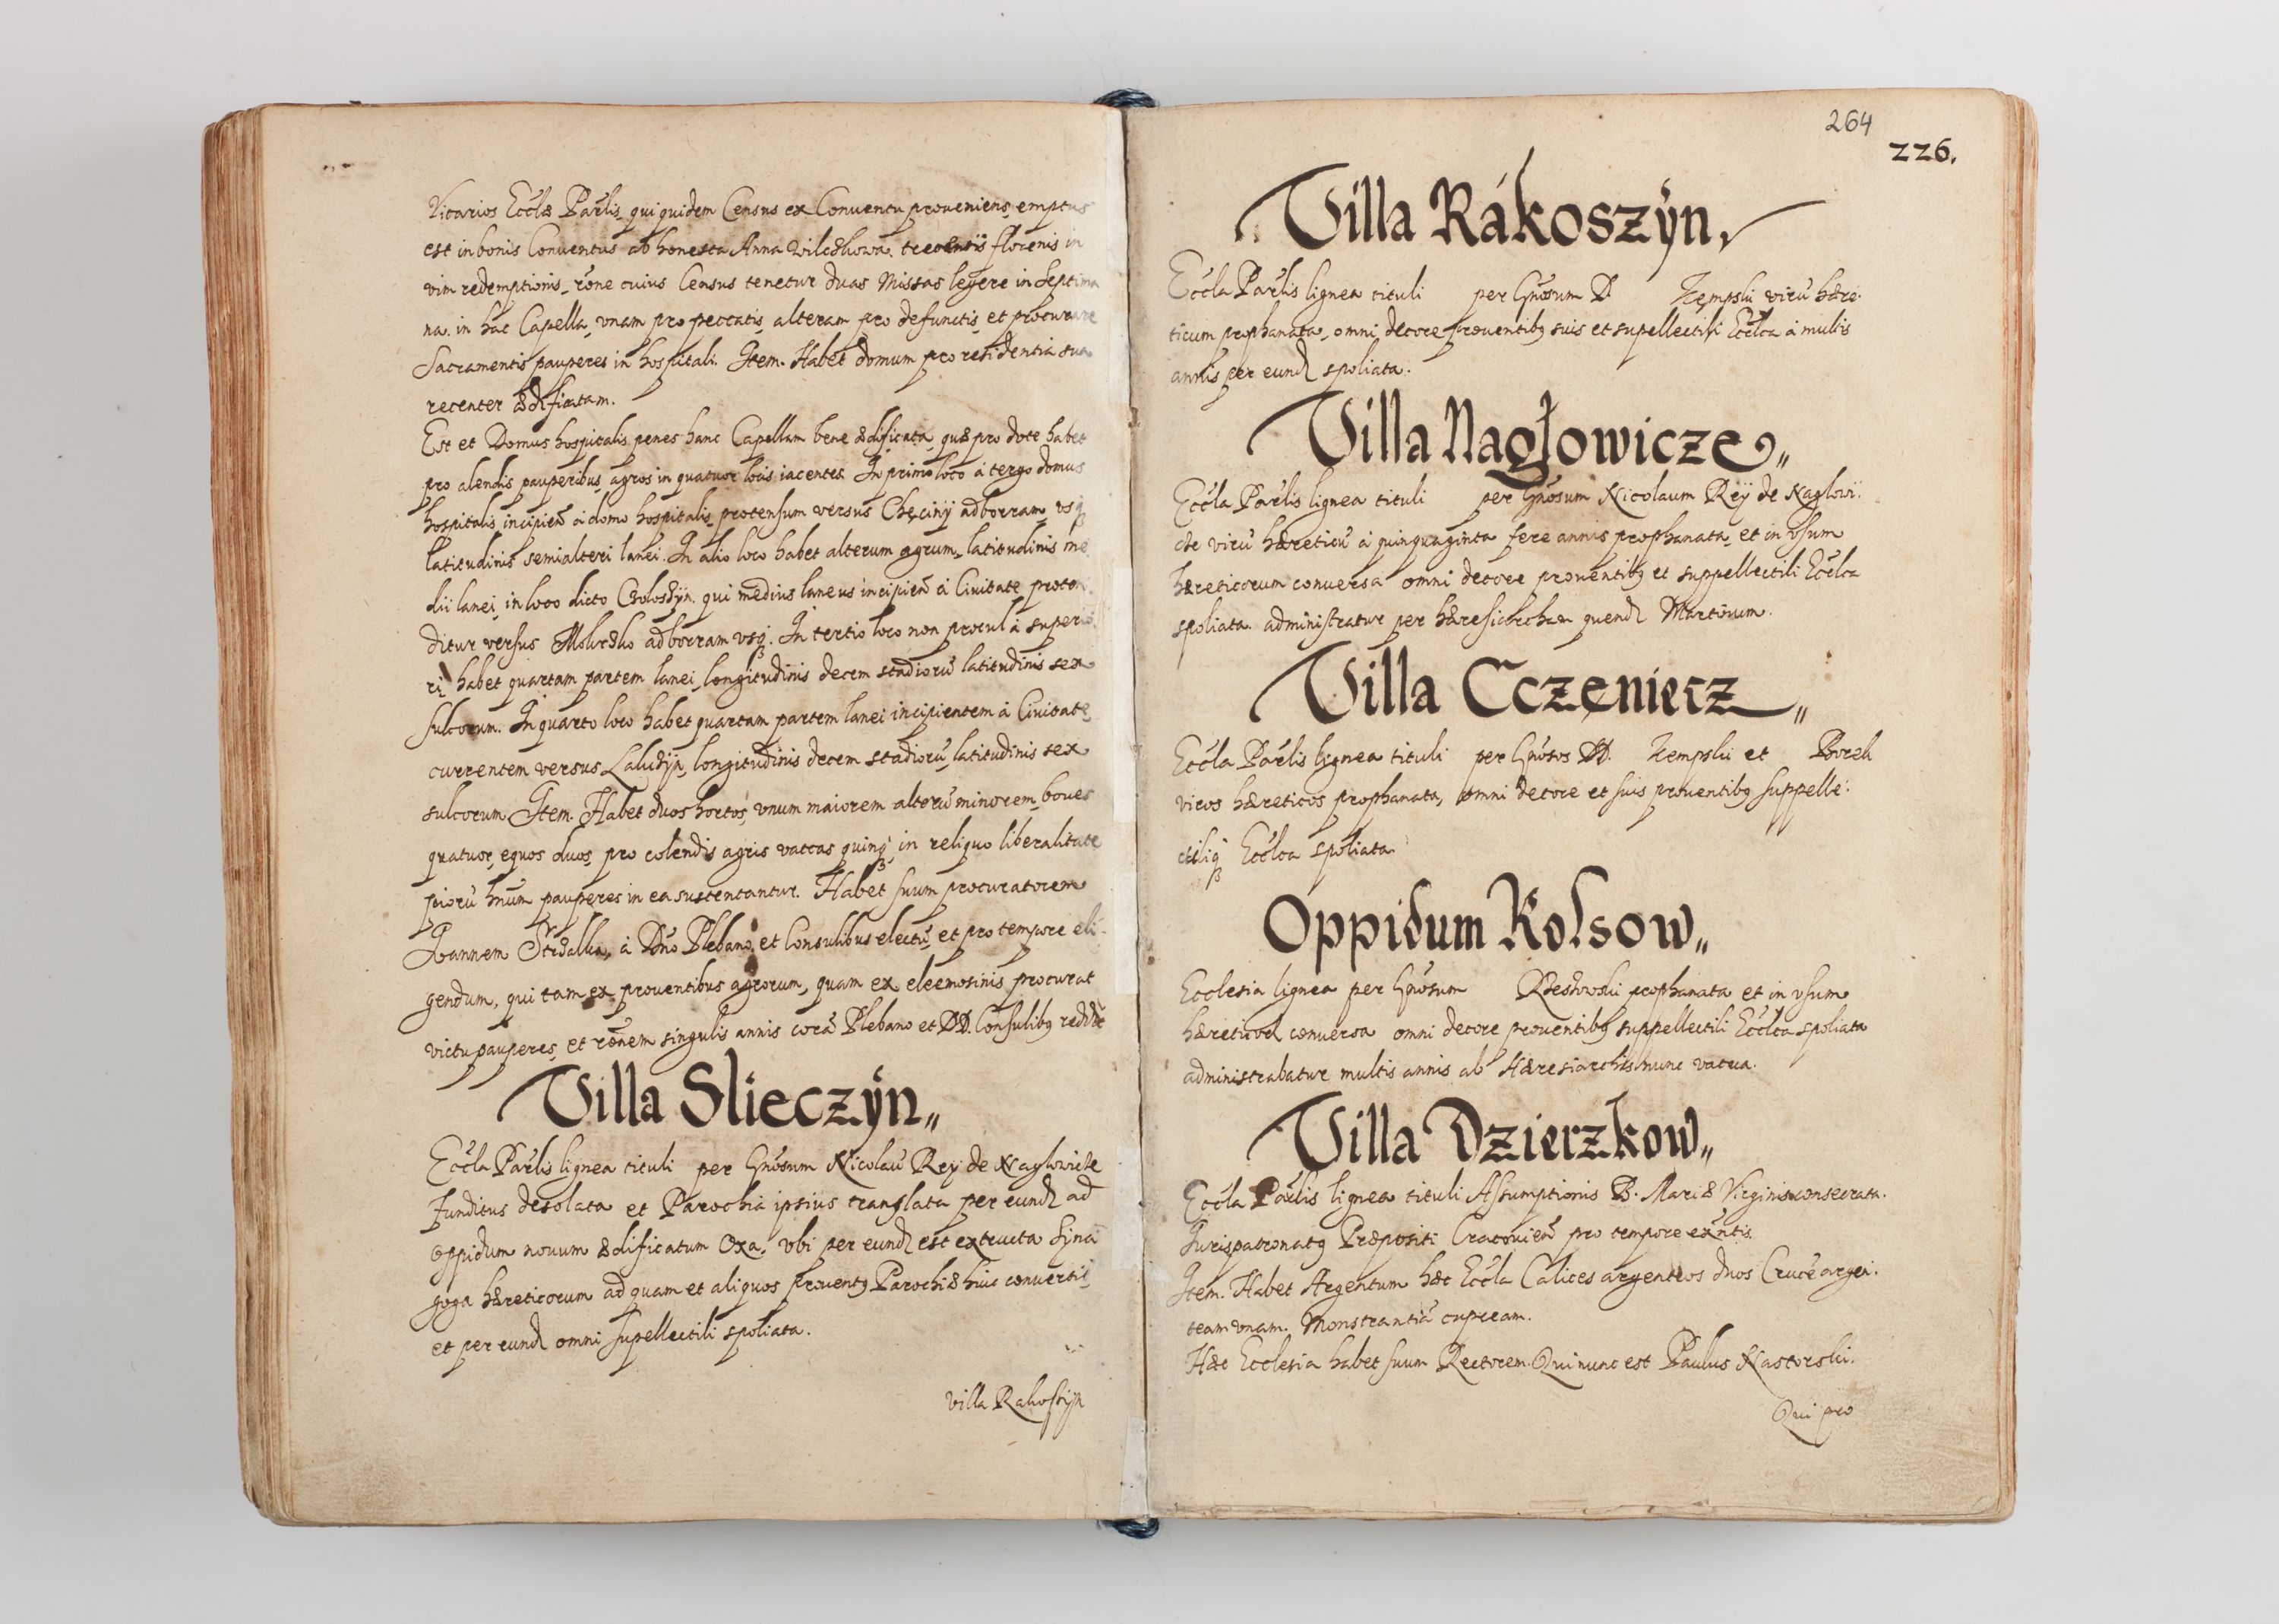 Vicarios Eccłæ Parłis, qui quidem Census ex Conuentu proueniens, emptus
est in bonis Conuentus ab honesta Anna trecentis florenis in
vim redemptionis, rõne cuius Census tenetur duas Missas legere in septima
na. in hac Capella, vnam pro peccatis, alteram pro defunctis, et procurare
Sacramentis pauperes in hospitali. Item. Habet domum pro residentia sua
recenter ædificatam.
Est et Domus hospitalis penes hanc Capellam bene ædificata, quæ pro dote habet
pro alendis pauperibus, agros in quatuor locis iacentes. In primo loco à tergo domus
hospitalis incipień à domo hospitalis, protensum versus Chęciny ad borram, vsq3
latitudinis semialteri lanei. In alio loco habet alterum agrum, latitudinis me
dii lanei, in loco dicto qui medius laneus incipień à Ciuitate proten
ditur versus ad borram vsq3. In tertio loco non procul à superio
ri habet quartam partem lanei, longitudinis decem stadiorũ latitudinis sex
sulcorum. In quarto loco habet quartam partem lanei incipientem à Ciuitate,
currentem versus longitudinis decem stadiorũ, latitudinis sex
sulcorum Item. Habet duos hortos, vnum maiorem alterũ minorem, boues
quatuor, equos duos, pro colendis agris vaccas quinq3, in reliquo liberalitate
piorũ hñum pauperes in ea sustentantur. Habet suum procuratorem
Joannem à Dńo Plebano, et Consulibus electũ, et pro tempore eli-
gendum, qui tam ex prouentibus agrorum, quam ex eleemosinis procurat
victu pauperes, et rõnem singulis annis corã Plebano et DD. Consulibq reddit
Villa Slieczÿn,,
Eccła Parłis lignea tituli per Gńosum Nicolaũ Reÿ de Naglowicze
funditus desolata et Parochia ipsius translata per eund ad
oppidum nouum ædificatum Oxa, vbi per eund est extructa Syna
goga hæreticorum ad quam et aliquos prouentq Parochiæ huic conuertit
et per eund omni supellectili spoliata.
villa Rakoszyn
264
226.
Villa Rákoszÿn,
Eccła Parłis lignea tituli per Gńosum D. virũ hære-
ticum prophanata, omni decore prouentibq suis et supellectili Ecclca à multis
annis per eund spoliata.
Villa Nagłowicze,,
Eccła Parłis lignea tituli per Gńosum Nicolaum Reÿ de Naglowi:
cze virũ hæreticũ à quinquaginta fere annis prophanata, et in vsum
hæreticorum conuersa omni decore prouentibq et suppellectili Ecclca
spoliata. administratur per hæresiarcham quend Martinum.
Villa Cczęniecz,,
Eccła Parłis lignea tituli per Gńosos DD. et
viros hæreticos prophanata, omni decore et suis prouentibq suppelle:
ctiliq3 Ecclca spoliata.
Oppidum Kolsow,,
Ecclesia lignea per Gńosum prophanata et in vsum
hæreticoꝝ conuersa omni decore prouentibq suppellectili Ecclca spoliata
administrabatur multis annis ab Hæresiarchis nunc vacua.
Villa Dzierzkow,,
Eccła Parłis lignea tituli Assumptionis B. Mariæ Virginis consecrata.
Jurispatronatq Præpositi Cracouień pro tempore exñtis.
Item. Habet Argentum hæc Eccła Calices argenteos duos Crucẽ argen-
team vnam. Monstrantiã cupream.
Hæc Ecclesia habet suum Rectorem. Qui nunc est Paulus Nastorski.
Qui pro